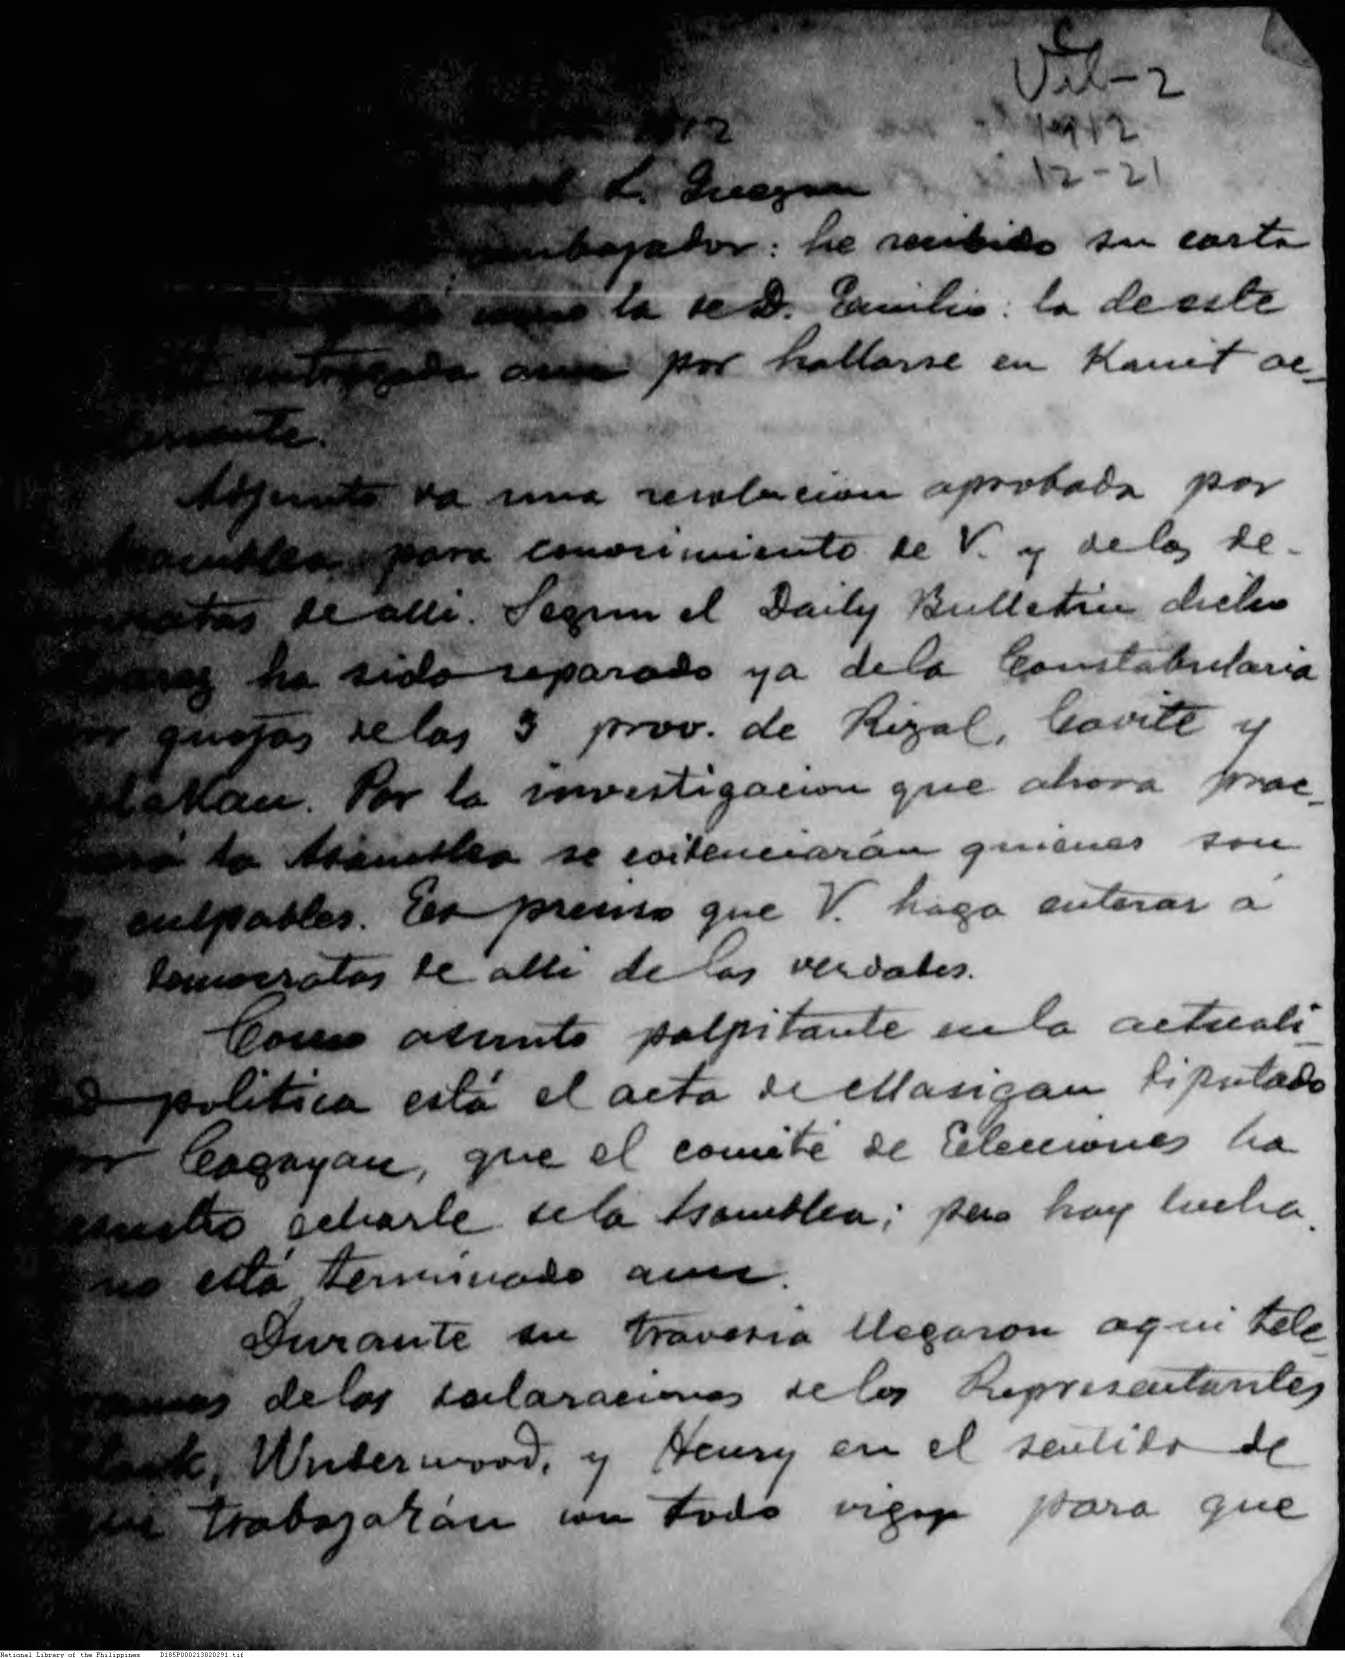 Vil-2
1912
12-21
1912
L. Quezon
embajador: he recibido su carta
como la de D. Emilio: la de este
entregada aun por hallarse en Kawit ac-
Adjunto va una resolucion aprobada por
Asamblea para conocimiento de V. y de los de-
de alli. Segun el Daily Bulletin dicho
ha sido separado ya de la Constabularia
quejas de las 3 prov. de Rizal, Cavite y
Por la investigacion que ahora prac-
la Asamblea se evidenciarán quienes son
culpables. Es preciso que V. haga enterar á
democratas de alli de las verdades.
Como asunto palpitante en la actuali-
politica está el acta de Masigan diputado
por Cagayan, que el comité de Elecciones ha
echarle de la Asamblea; pero hay lucha.
no está terminado aun.
Durante su travesia llegaron aqui tele-
de las declaraciones de los Representantes
Wnderwood, y Henry en el sentido de
que trabajarán con todo vigor para que
National Library of the Philippines D185P000213820291.tif